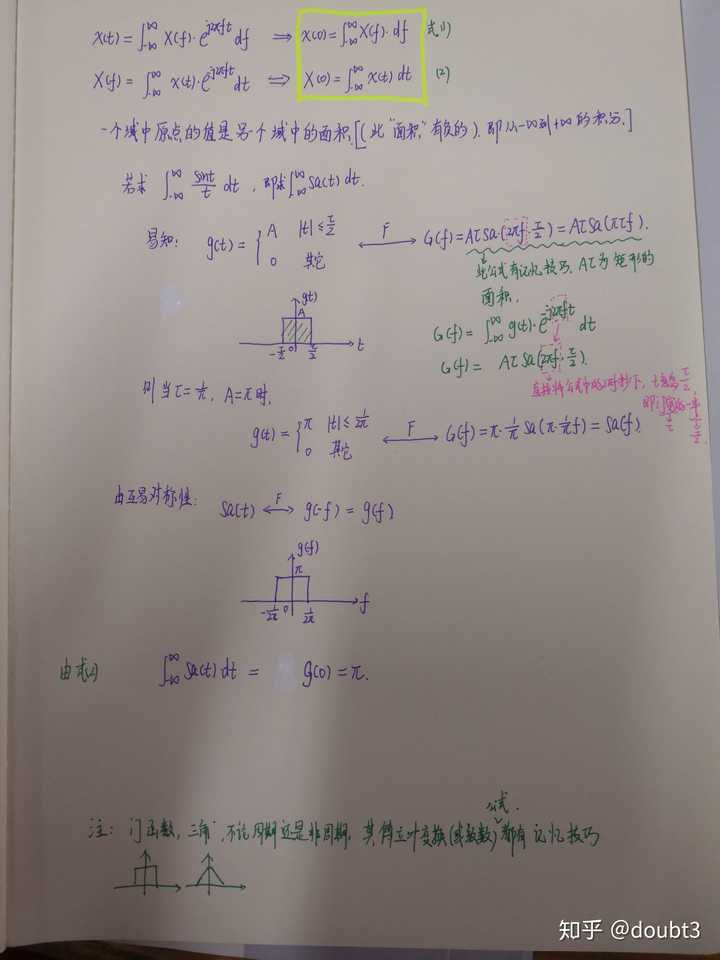 x(t) = ∫_{-∞}^{∞} X(f)·e^{j2πft} df ⟹ x(0) = ∫_{-∞}^{∞} X(f)·df 式(1)
X(f) = ∫_{-∞}^{∞} x(t)·e^{-j2πft} dt ⟹ X(0) = ∫_{-∞}^{∞} x(t) dt (2)
一个域中原点的值是另个域中的面积.[(此"面积"有负的). 即从-∞到+∞的积分.]
若求 ∫_{-∞}^{∞} sint/t dt , 即求∫_{-∞}^{∞} Sa(t) dt.
易知: g(t) = { A |t| ≤ τ/2
0 其它
F
G(f) = AτSa(2πf·τ/2) = AτSa(πτf).
此公式有记忆技巧. Aτ为矩形的
面积.
g(t)
A
-τ/2 0 τ/2 t
G(f) = ∫_{-∞}^{∞} g(t)·e^{-j2πft} dt
G(f) = AτSa(2πf·τ/2).
则当τ=1/π, A=π时,
g(t) = { π |t| ≤ 1/2π
0 其它
F
G(f) = π·1/π Sa(π·1/π f) = Sa(f)
由互易对称性: Sa(t) F g(-f) = g(f)
g(f)
π
-1/2π 0 1/2π f
由式(2) ∫_{-∞}^{∞} Sa(t) dt = g(0) = π.
公式.
注: 门函数, 三角~, 不论周期还是非周期, 其傅立叶变换(或级数)都有记忆技巧
知乎 @doubt3